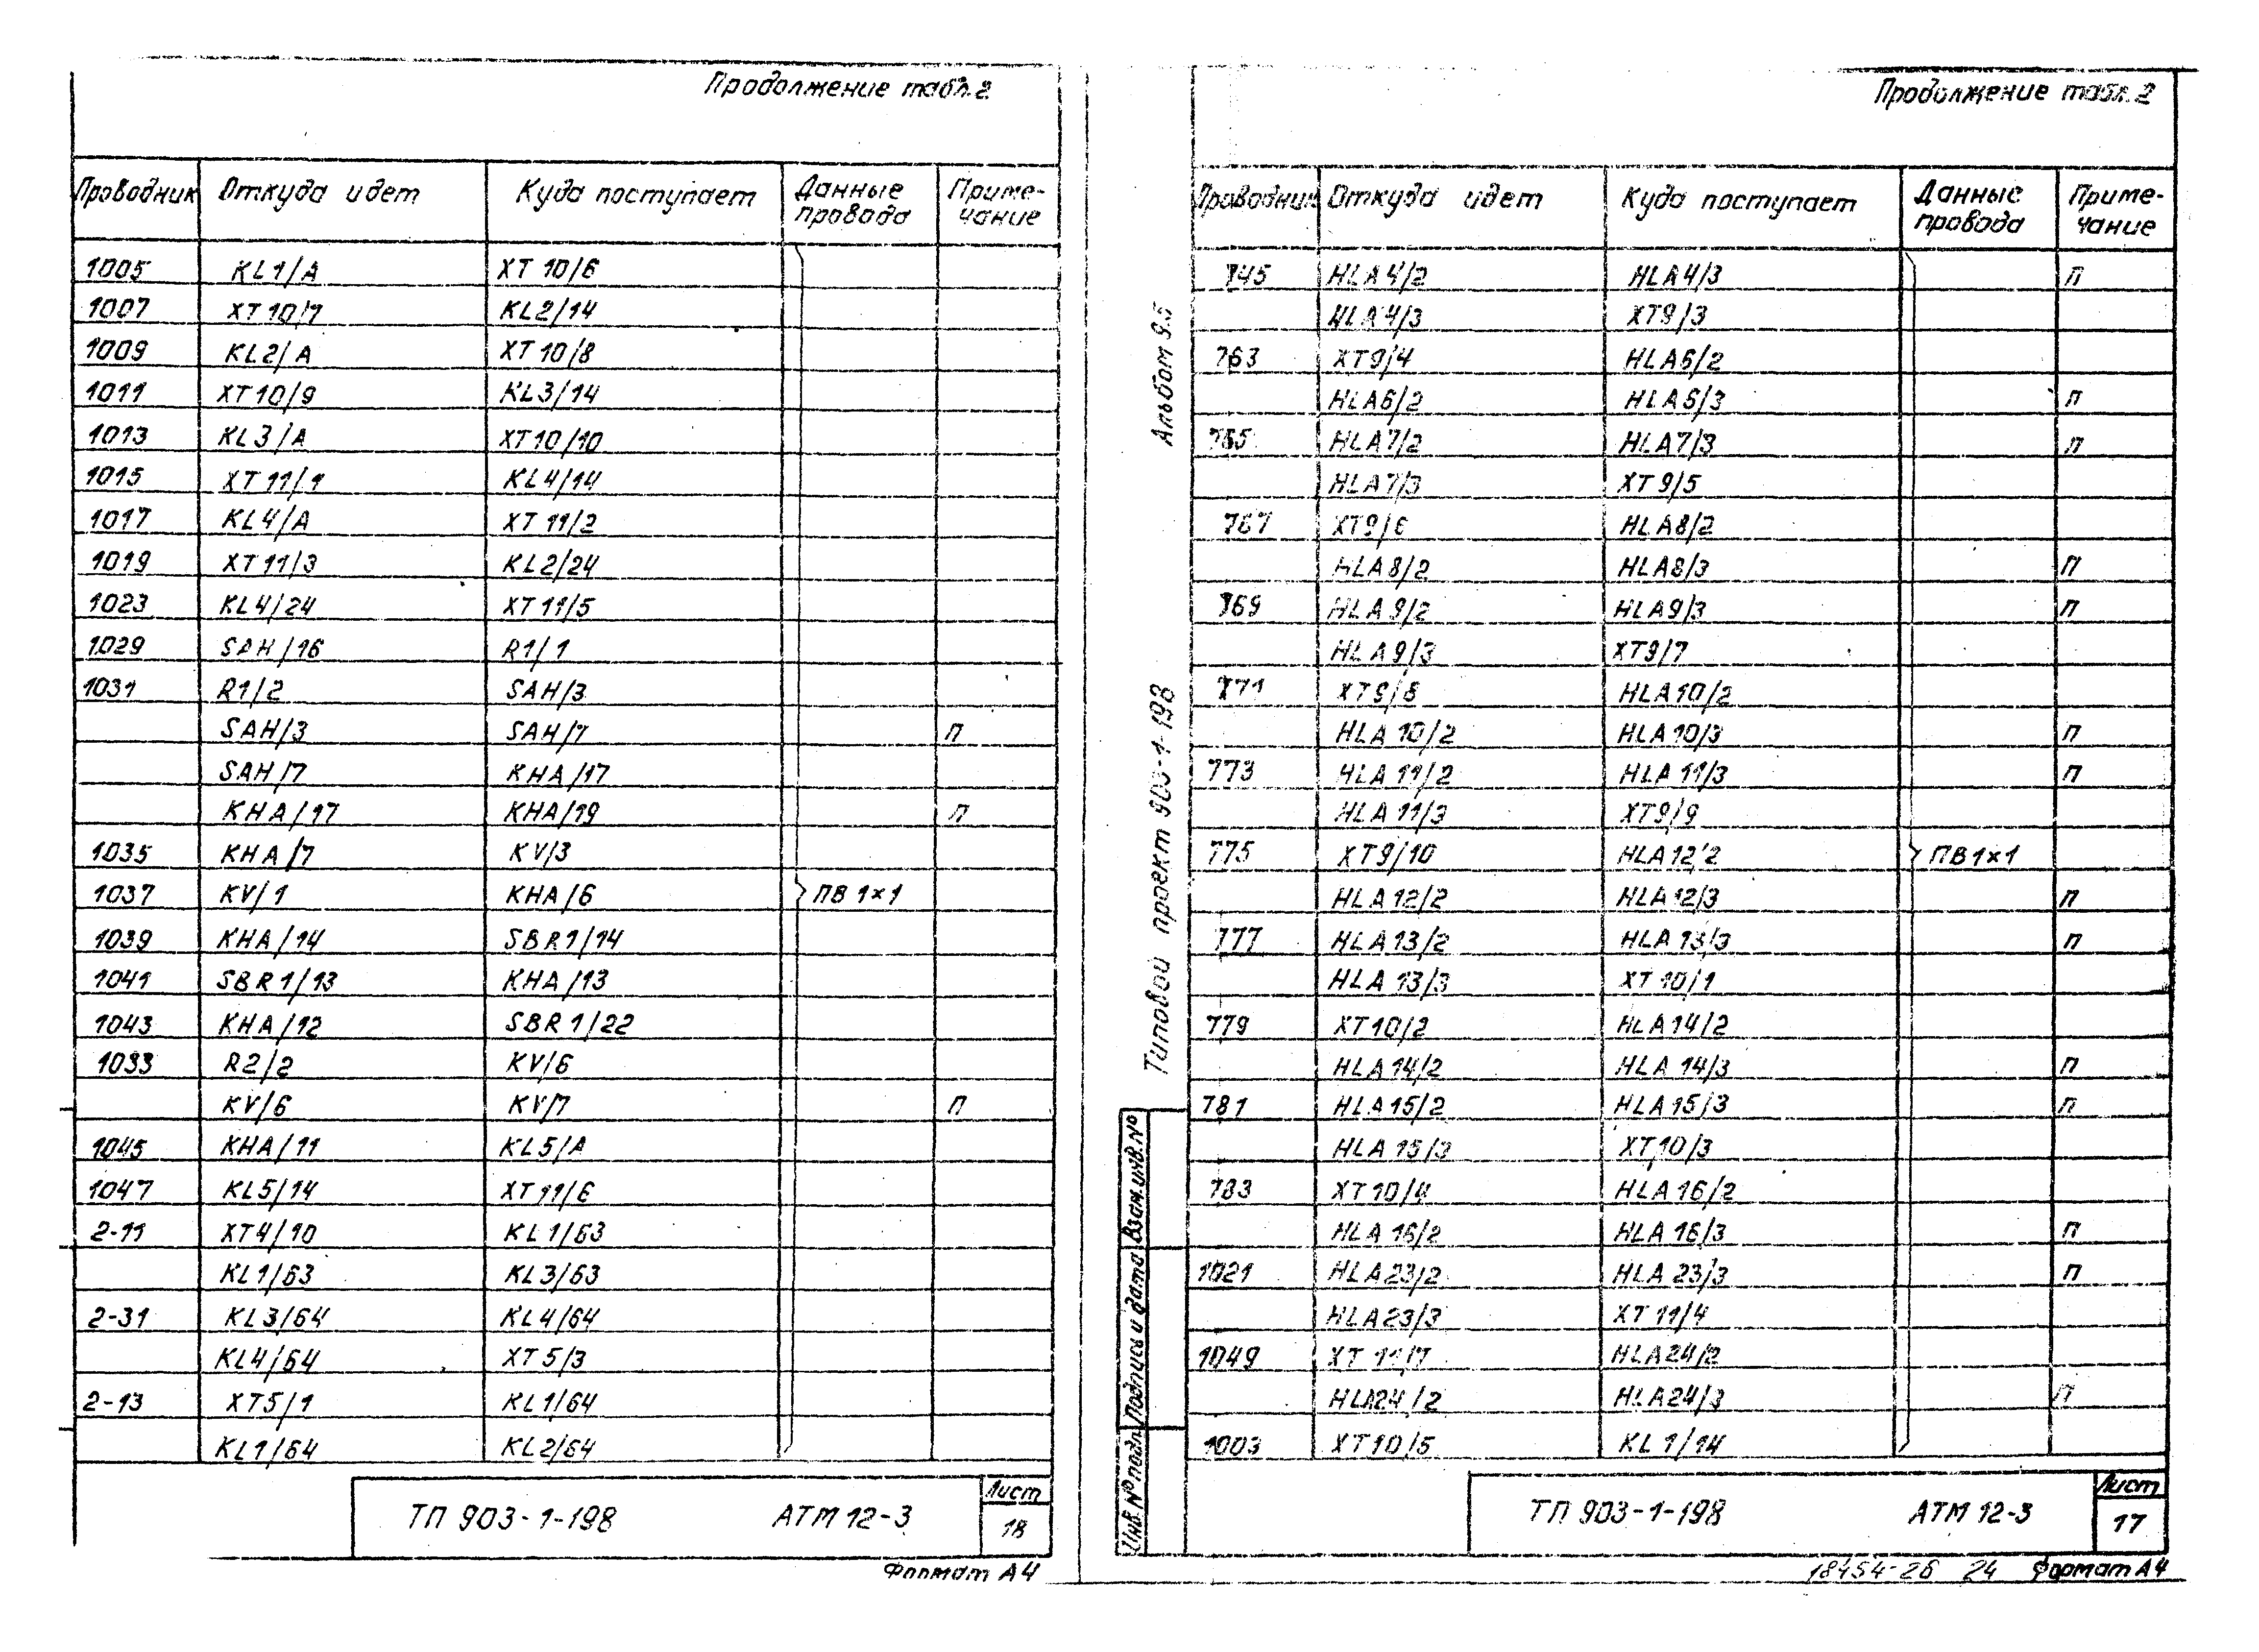 Продолжение табл. 2
Проводник Откуда идет Куда поступает Данные провода Примечание
1005 KL1/A XT10/6
1007 XT10/7 KL2/14
1009 KL2/A XT10/8
1011 XT10/9 KL3/14
1013 KL3/A XT10/10
1015 XT11/1 KL4/14
1017 KL4/A XT11/2
1019 XT11/3 KL2/24
1023 KL4/24 XT11/5
1029 SAH/16 R1/1
1031 R1/2 SAH/3
SAH/3 SAH/7 П
SAH/7 KHA/17
KHA/17 KHA/19 П
1035 KHA/7 KV/3
1037 KV/1 KHA/6 ПВ 1×1
1039 KHA/14 SBR1/14
1041 SBR1/13 KHA/13
1043 KHA/12 SBR1/22
1033 R2/2 KV/6
KV/6 KV/7 П
1045 KHA/11 KL5/A
1047 KL5/14 XT11/6
2-11 XT4/10 KL1/63
KL1/63 KL3/63
2-31 KL3/64 KL4/64
KL4/64 XT5/3
2-13 XT5/1 KL1/64
KL1/64 KL2/64
ТП 903-1-198 АТМ 12-3 Лист 18
Формат А4
Продолжение табл. 2
Проводник Откуда идет Куда поступает Данные провода Примечание
745 HLA4/2 HLA4/3 П
HLA4/3 XT9/3
763 XT9/4 HLA6/2
HLA6/2 HLA6/3 П
765 HLA7/2 HLA7/3 П
HLA7/3 XT9/5
767 XT9/6 HLA8/2
HLA8/2 HLA8/3 П
769 HLA9/2 HLA9/3 П
HLA9/3 XT9/7
771 XT9/8 HLA10/2
HLA10/2 HLA10/3 П
773 HLA11/2 HLA11/3 П
HLA11/3 XT9/9
775 XT9/10 HLA12/2 ПВ 1×1
HLA12/2 HLA12/3 П
777 HLA13/2 HLA13/3 П
HLA13/3 XT10/1
779 XT10/2 HLA14/2
HLA14/2 HLA14/3 П
781 HLA15/2 HLA15/3 П
HLA15/3 XT10/3
783 XT10/4 HLA16/2
HLA16/2 HLA16/3 П
1021 HLA23/2 HLA23/3 П
HLA23/3 XT11/4
1049 XT11/7 HLA24/2
HLA24/2 HLA24/3 П
1003 XT10/5 KL1/14
ТП 903-1-198 АТМ 12-3 Лист 17
18454-26 24 Формат А4
Альбом 9.5
Типовой проект 903-1-198
Взам.инв.№
Подпись и дата
Инв.№ подл.